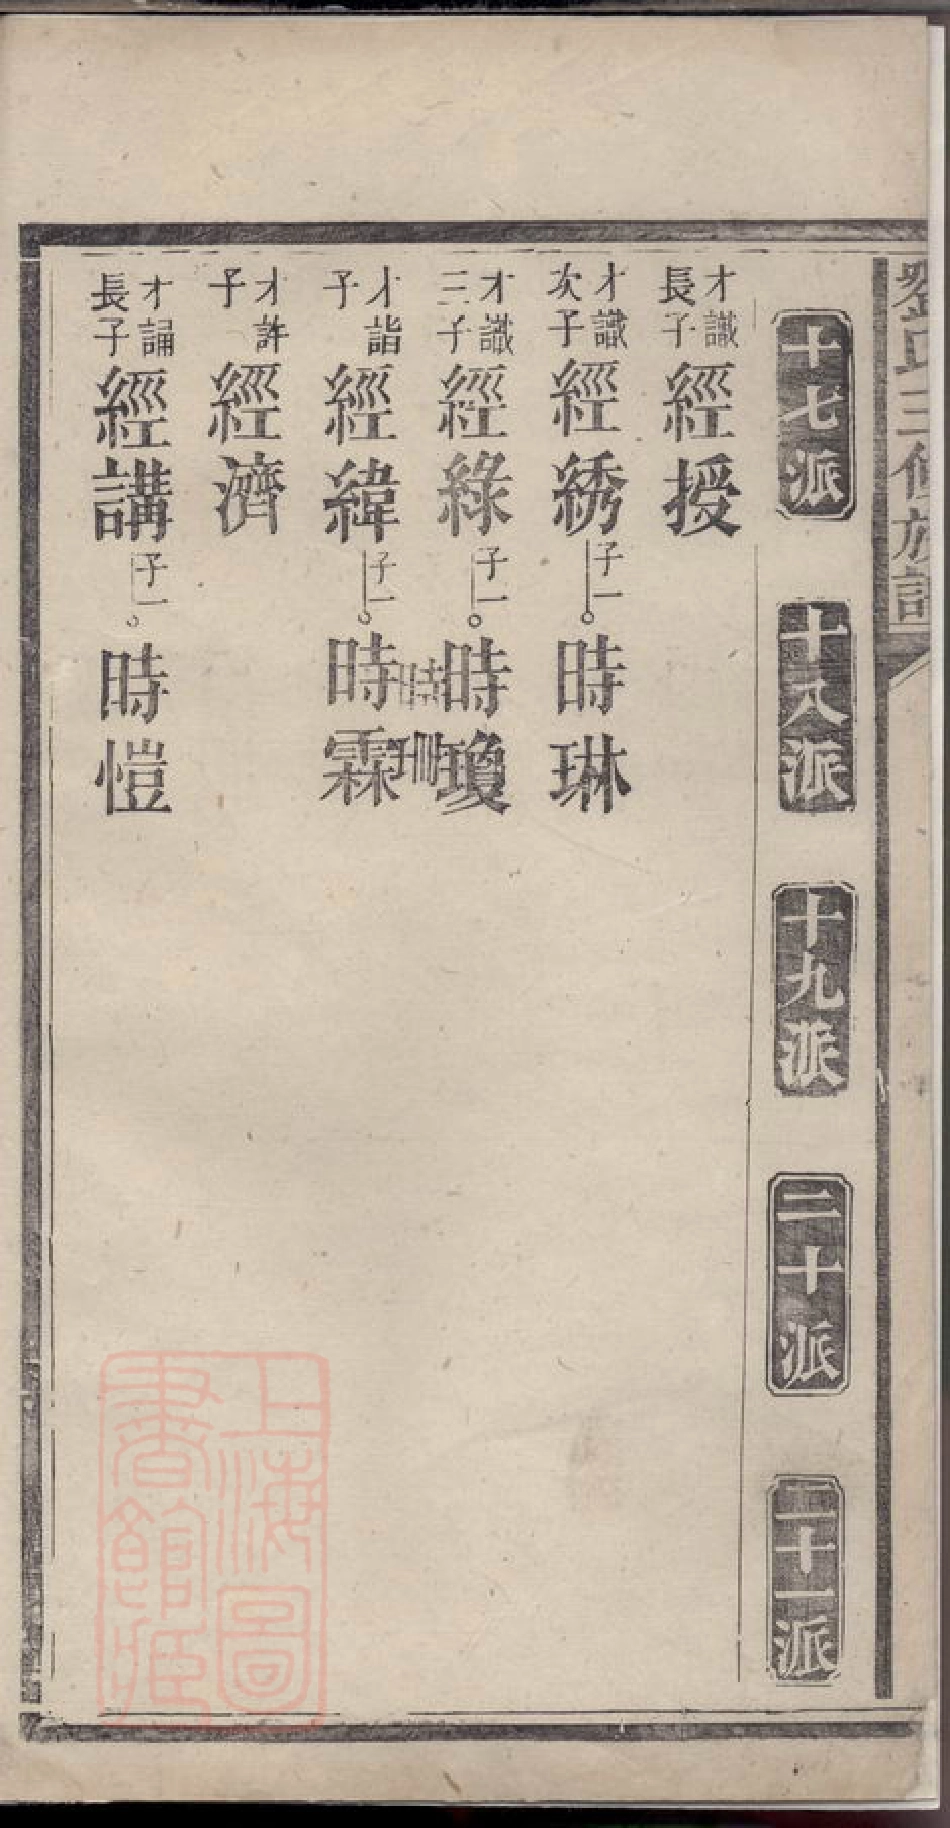 劉氏三修族譜
十七派
十八派
十九派
二十派
二十一派
才識長子 經授
才識次子 經綉 子一 時琳
才識三子 經綠 子一 時瓊
時珊
才詣子 經緯 子一 時霖
才許子 經濟
才誦長子 經講 子一 時愷
上海圖書館藏